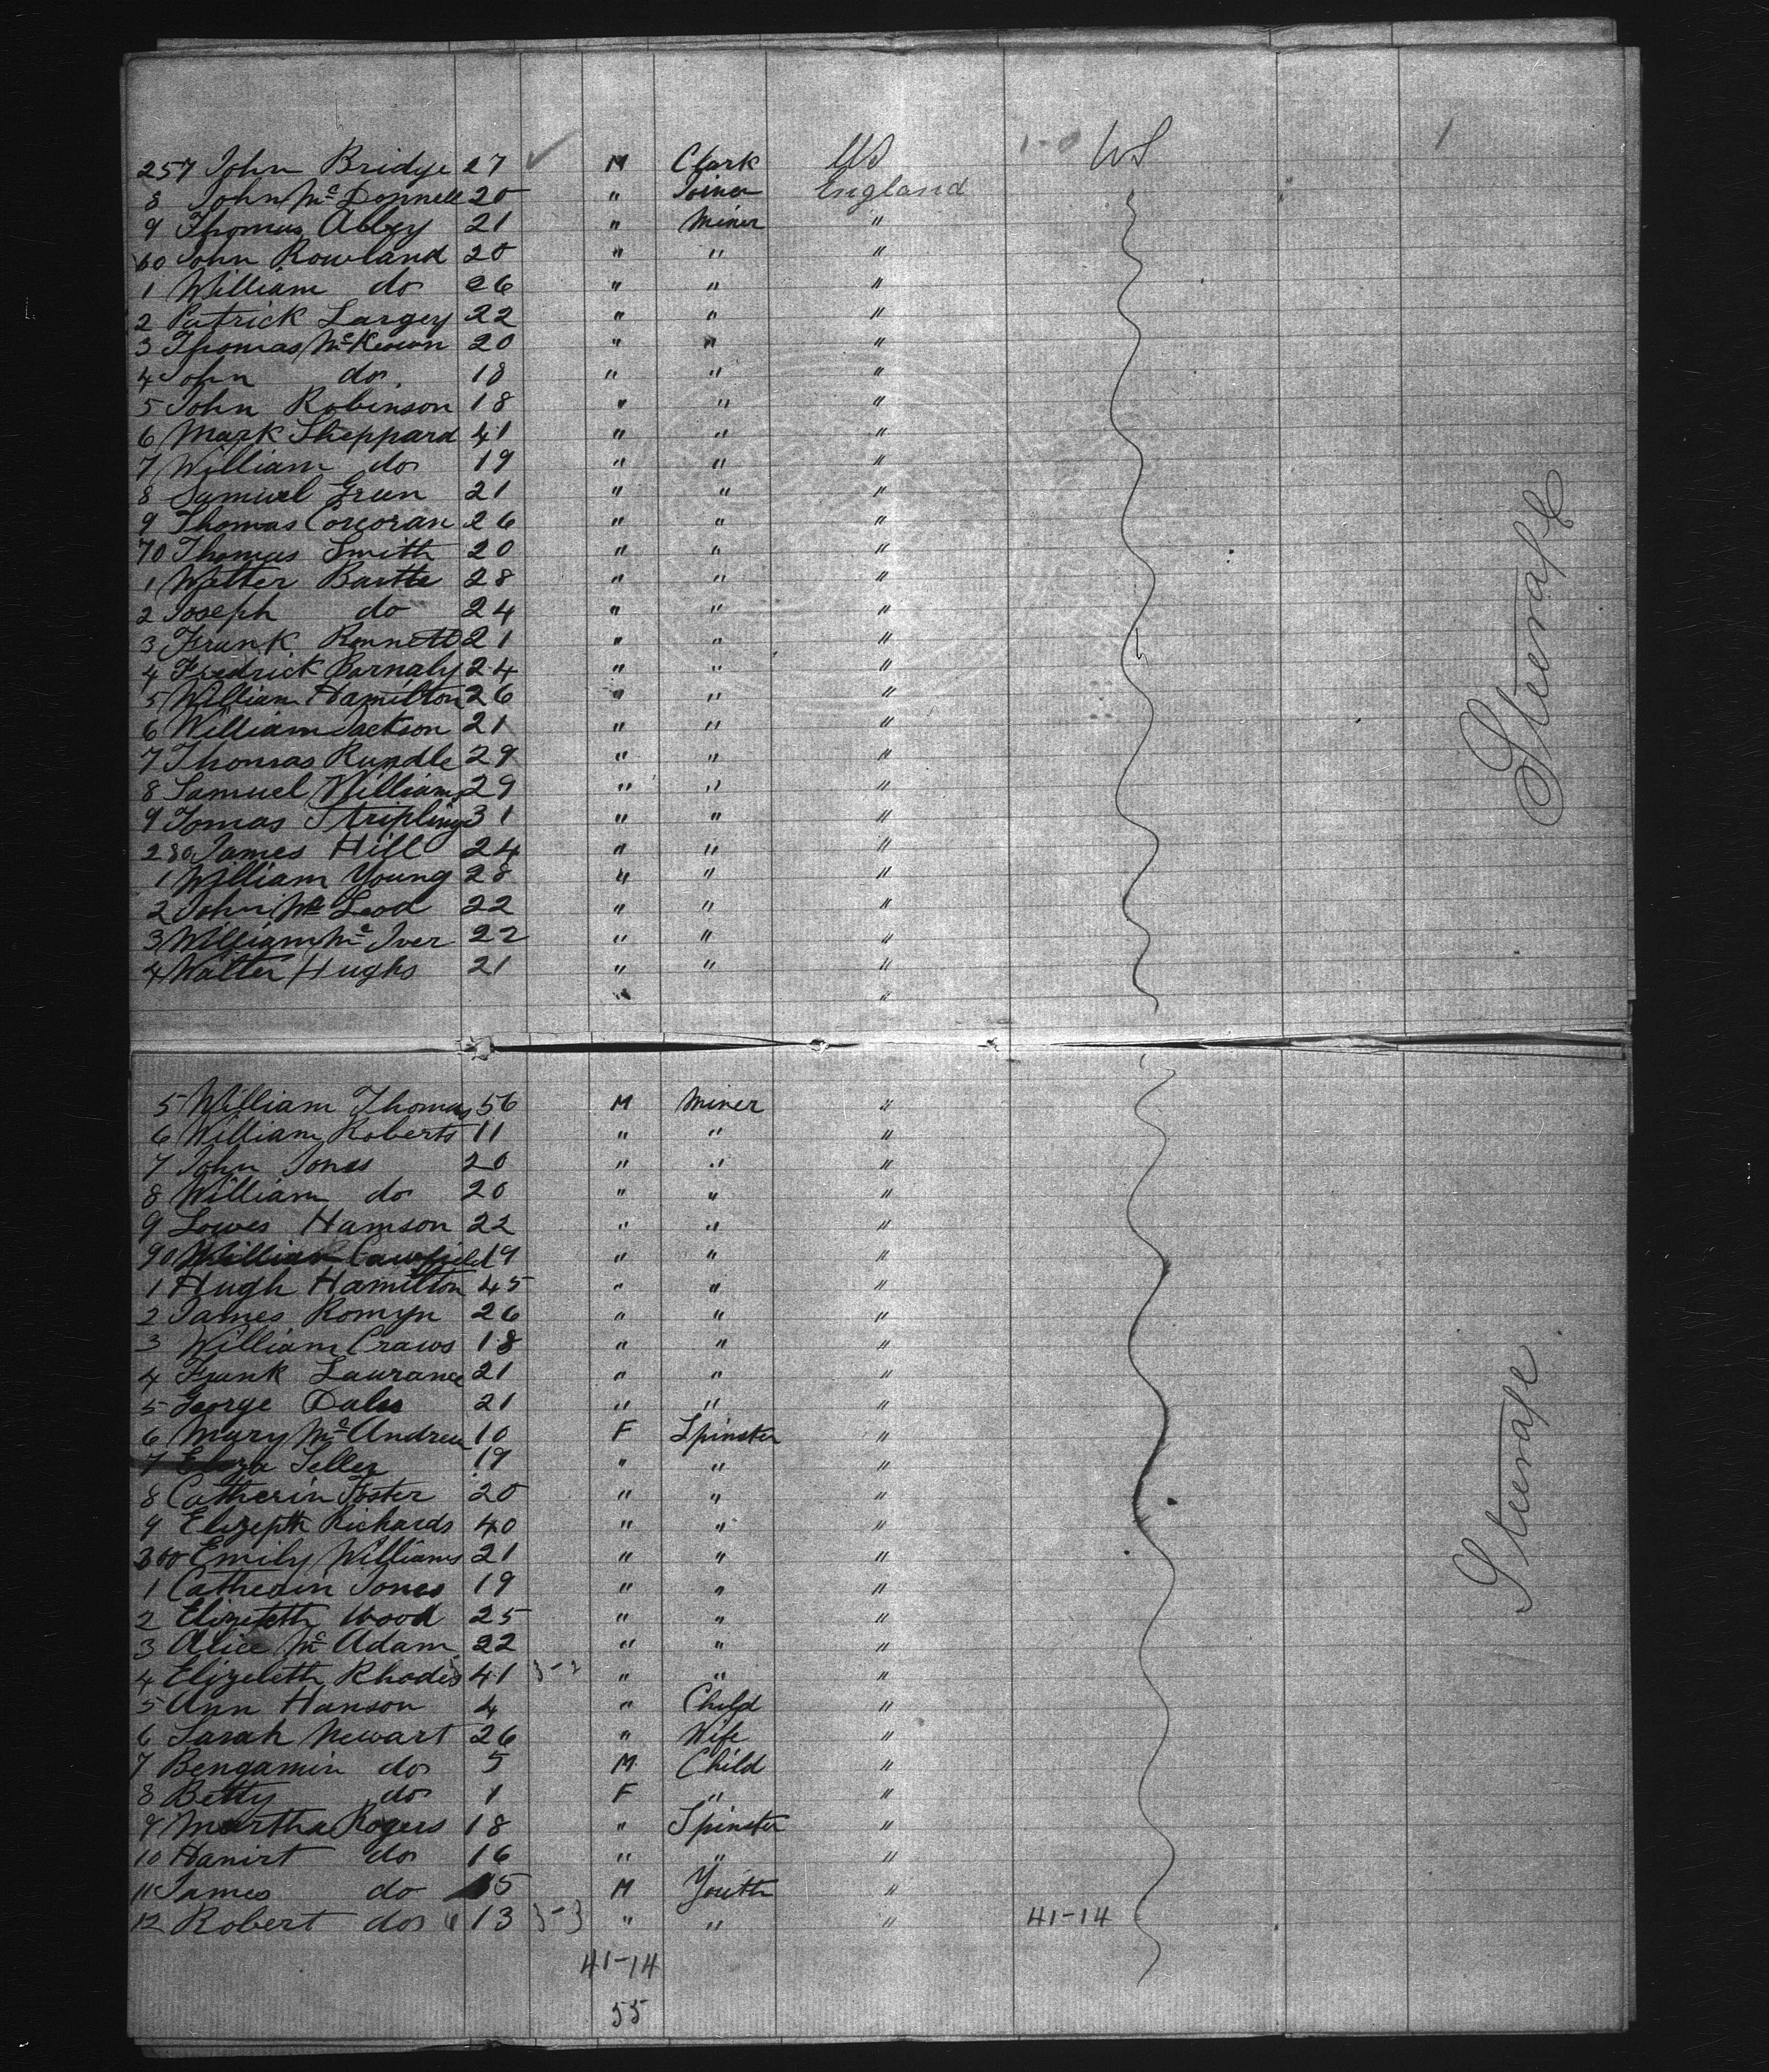 257 John Bridge 27 ✓ M Clark US 1-0 US 1
8 John Mc Donnell 20 " Joiner England
9 Thomas Abbey 21 " Miner "
60 John Rowland 20 " " "
1 William do 26 " " "
2 Patrick Largey 22 " " "
3 Thomas McKeown 20 " " "
4 John do 18 " " "
5 John Robinson 18 " " "
6 Mark Sheppard 41 " " "
7 William do 19 " " "
8 Samuel Green 21 " " "
9 Thomas Corcoran 26 " " "
70 Thomas Smith 20 " " "
1 Walter Bartle 28 " " "
2 Joseph do 24 " " "
3 Frank Rennett 21 " " "
4 Fredrick Barnaly 24 " " "
5 William Hamilton 26 " " "
6 William Jackson 21 " " "
7 Thomas Rundle 29 " " "
8 Samuel Williams 29 " " "
9 Tomas Stripling 31 " " "
280 James Hill 24 " " "
1 William Young 28 " " "
2 John Mc Leod 22 " " "
3 William Mc Iver 22 " " "
4 Walter Hughs 21 " " "
" "
Steerage
5 William Thomas 56 M Miner "
6 William Roberts 11 " " "
7 John Jones 20 " " "
8 William do 20 " " "
9 Lowes Hamson 22 " " "
90 William 19 " " "
1 Hugh Hamilton 45 " " "
2 James Romyn 26 " " "
3 William Craws 18 " " "
4 Frank Laurance 21 " " "
5 George Dales 21 " " "
6 Mary Mc Andrew 10 F Spinster "
7 Eliza Teller 19 " " "
8 Catherin Foster 20 " " "
9 Elizepth Richards 40 " " "
300 Emily Williams 21 " " "
1 Catherin Jones 19 " " "
2 Elizeteth Wood 25 " " "
3 Alice Mc Adam 22 " " "
4 Elizeleth Rhodes 41 " " "
5 Ann Hanson 4 " Child "
6 Sarah Newart 26 " Wife "
7 Bengamin do 5 M Child "
8 Betty do 1 F " "
9 Martha Rogers 18 " Spinster "
10 Hanirt do 16 " " "
11 James do 15 M Youth "
12 Robert do 13 3-3 " " " 41-14
Steerage
41-14
55